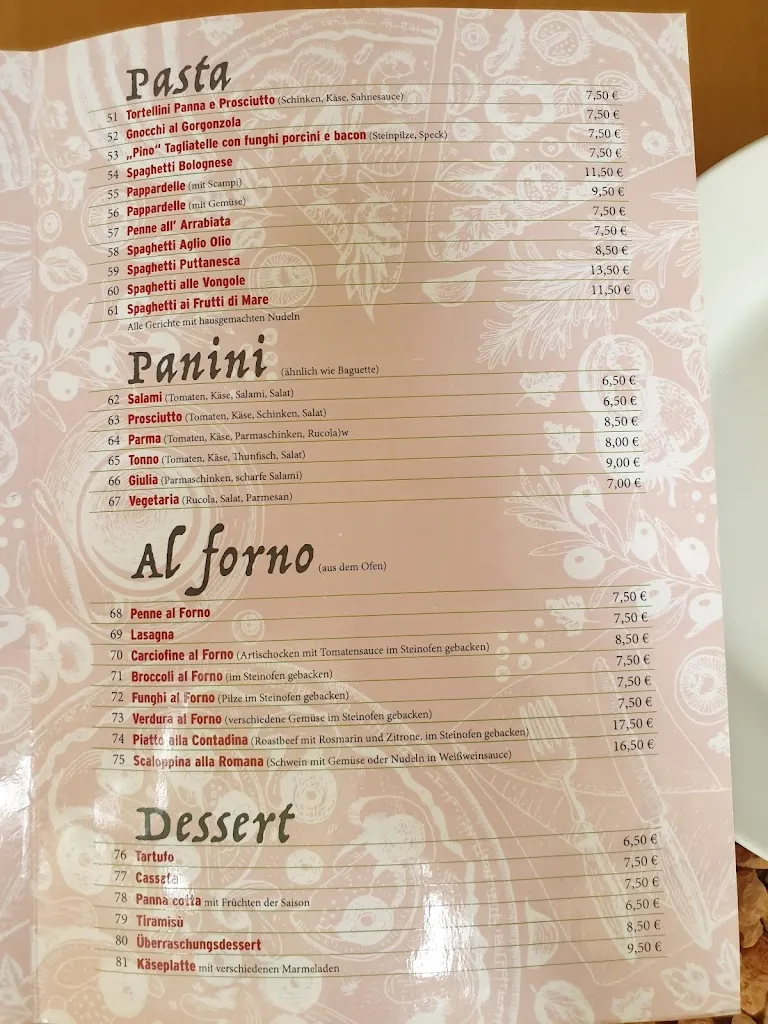 Pasta
51 Tortellini Panna e Prosciutto (Schinken, Käse, Sahnesauce) 7,50 €
52 Gnocchi al Gorgonzola 7,50 €
53 „Pino“ Tagliatelle con funghi porcini e bacon (Steinpilze, Speck) 7,50 €
54 Spaghetti Bolognese 7,50 €
55 Pappardelle (mit Scampi) 11,50 €
56 Pappardelle (mit Gemüse) 9,50 €
57 Penne all' Arrabiata 7,50 €
58 Spaghetti Aglio Olio 7,50 €
59 Spaghetti Puttanesca 8,50 €
60 Spaghetti alle Vongole 13,50 €
61 Spaghetti ai Frutti di Mare 11,50 €
Alle Gerichte mit hausgemachten Nudeln
Panini (ähnlich wie Baguette)
62 Salami (Tomaten, Käse, Salami, Salat) 6,50 €
63 Prosciutto (Tomaten, Käse, Schinken, Salat) 6,50 €
64 Parma (Tomaten, Käse, Parmaschinken, Rucola)w 8,50 €
65 Tonno (Tomaten, Käse, Thunfisch, Salat) 8,00 €
66 Giulia (Parmaschinken, scharfe Salami) 9,00 €
67 Vegetaria (Rucola, Salat, Parmesan) 7,00 €
Al forno (aus dem Ofen)
68 Penne al Forno 7,50 €
69 Lasagna 7,50 €
70 Carciofine al Forno (Artischocken mit Tomatensauce im Steinofen gebacken) 8,50 €
71 Broccoli al Forno (im Steinofen gebacken) 7,50 €
72 Funghi al Forno (Pilze im Steinofen gebacken) 7,50 €
73 Verdura al Forno (verschiedene Gemüse im Steinofen gebacken) 7,50 €
74 Piatto alla Contadina (Roastbeef mit Rosmarin und Zitrone, im Steinofen gebacken) 17,50 €
75 Scaloppina alla Romana (Schwein mit Gemüse oder Nudeln in Weißweinsauce) 16,50 €
Dessert
76 Tartufo 6,50 €
77 Cassata 7,50 €
78 Panna cotta mit Früchten der Saison 7,50 €
79 Tiramisù 6,50 €
80 Überraschungsdessert 8,50 €
81 Käseplatte mit verschiedenen Marmeladen 9,50 €